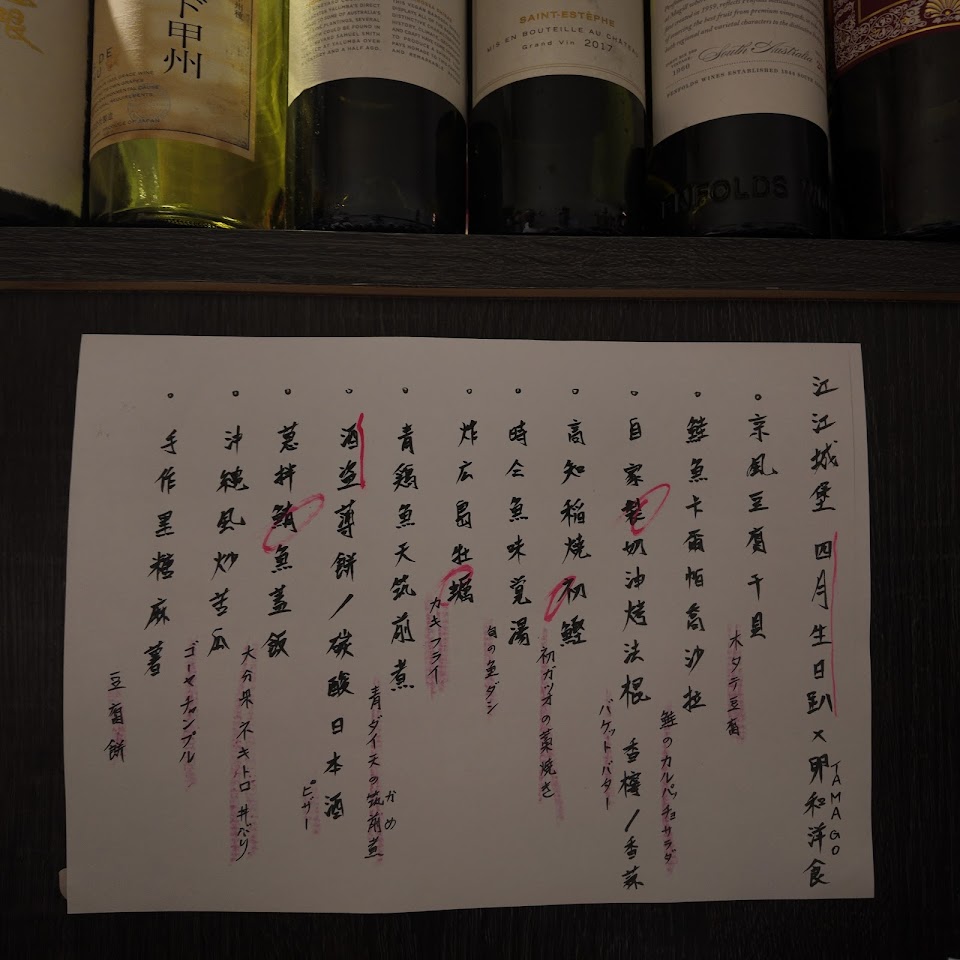 ド甲州
PRODUCT OF JAPAN
SAINT-ESTÈPHE
MIS EN BOUTEILLE AU CHÂTEAU
Grand Vin 2017
South Australia
PENFOLDS WINES ESTABLISHED 1844
江江城堡 四月生日趴×卵和洋食
TAMAGO
。京風豆腐干貝
ホタテ豆腐
。鮭魚卡爾帕喬沙拉
鮭のカルパッチョサラダ
。自家製切油烤法棍 香檸/香蒜
バケットバター
。高知稲燒初鰹
初ガツオの藁焼き
。時令魚味覚湯
旬の魚ダシ
。炸広島牡蠣
カキフライ
。青鶏魚天筑前煮
青ダイ天の筑前煮
かめ
。酒盗薄餅/碳酸日本酒
ピザー
。蔥拌鮪魚蓋飯
大分米ネギトロ丼ぶり
。沖縄風炒苦瓜
ゴーヤチャンプル
。手作黒糖麻薯
豆腐餅